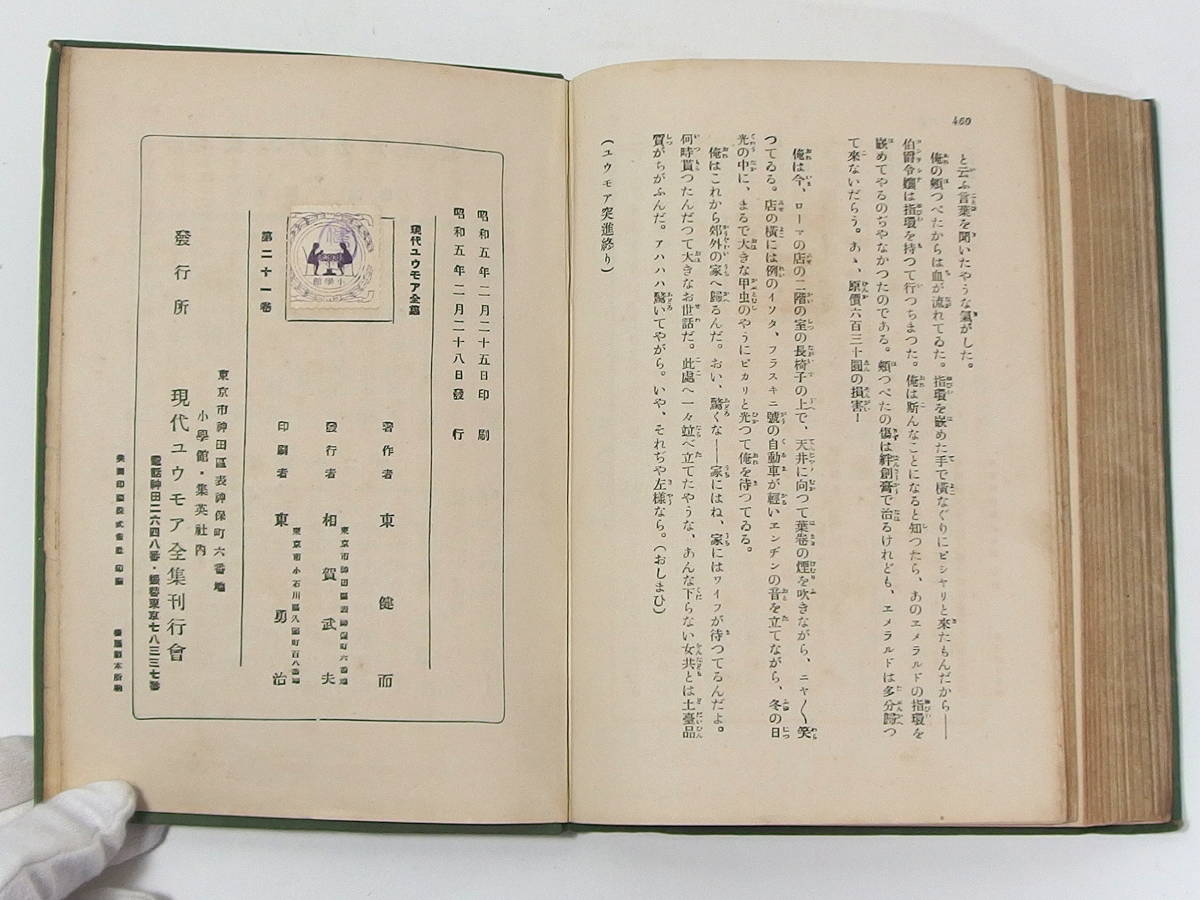 460
と云ふ言葉を聞いたやうな氣がした。
俺の頬つぺたからは血が流れてゐた。指環を嵌めた手で横なぐりにピシヤリと來たもんだから――
伯爵令孃は指環を持つて行つちまつた。俺は斯んなことになると知つたら、あのエメラルドの指環を
嵌めてやるのぢやなかつたのである。頬つぺたの傷は絆創膏で治るけれども、エメラルドは多分歸つ
て來ないだらう。あゝ、原價六百三十圓の損害！
俺は今、ローマの店の二階の室の長椅子の上で、天井に向つて葉巻の煙を吹きながら、ニヤ〳〵笑
つてゐる。店の横には例のイソタ、フラスキニ號の自動車が輕いエンヂンの音を立てながら、冬の日
光の中に、まるで大きな甲虫のやうにピカリと光つて俺を待つてゐる。
俺はこれから郊外の家へ歸るんだ。おい、驚くな――家にはね、家にはワイフが待つてるんだよ。
何時貰つたんだつて大きなお世話だ。此處へ一々竝べ立てたやうな、あんな下らない女共とは土臺品
質がちがふんだ。アハハハ驚いてやがら。いや、それぢや左様なら。（おしまひ）
（ユウモア突進終り）
昭和五年二月二十五日印刷
昭和五年二月二十八日發行
現代ユウモア全集
小學館
第二十一卷
著作者 東健而
東京市神田區表神保町六番地
發行者 相賀武夫
東京市小石川區久堅町百八番地
印刷者 東勇治
東京市神田區表神保町六番地
小學館・集英社内
發行所 現代ユウモア全集刊行會
電話神田二六四八番・振替東京七八三三七番
共同印刷株式會社印刷